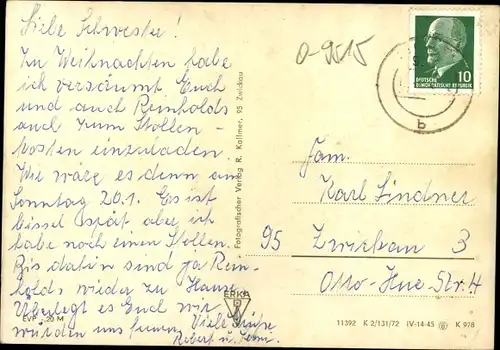 Liebe Schwester!
Zu Weihnachten habe
ich versäumt Euch
und auch Reinholds
auch zum Stollen-
kosten einzuladen.
Wie wäre es denn am
Sonntag 20.1. Es ist
bissel spät aber ich
habe noch einen Stollen.
Bis dahin sind ja Rein-
holds wieder zu Hause.
Überlegt es Euch wir
würden uns freuen
Viele Grüße
Robert u.
EVP -,20 M
Fotografischer Verlag R. Kallmer, 95 Zwickau
ERKA
0-9515
DEUTSCHE
DEMOKRATISCHE REPUBLIK
10
b
Fam.
Karl Lindner
95 Zwickau 3
Otto-Hue-Str. 4
11392 K 2/131/72 IV-14-45 K 978